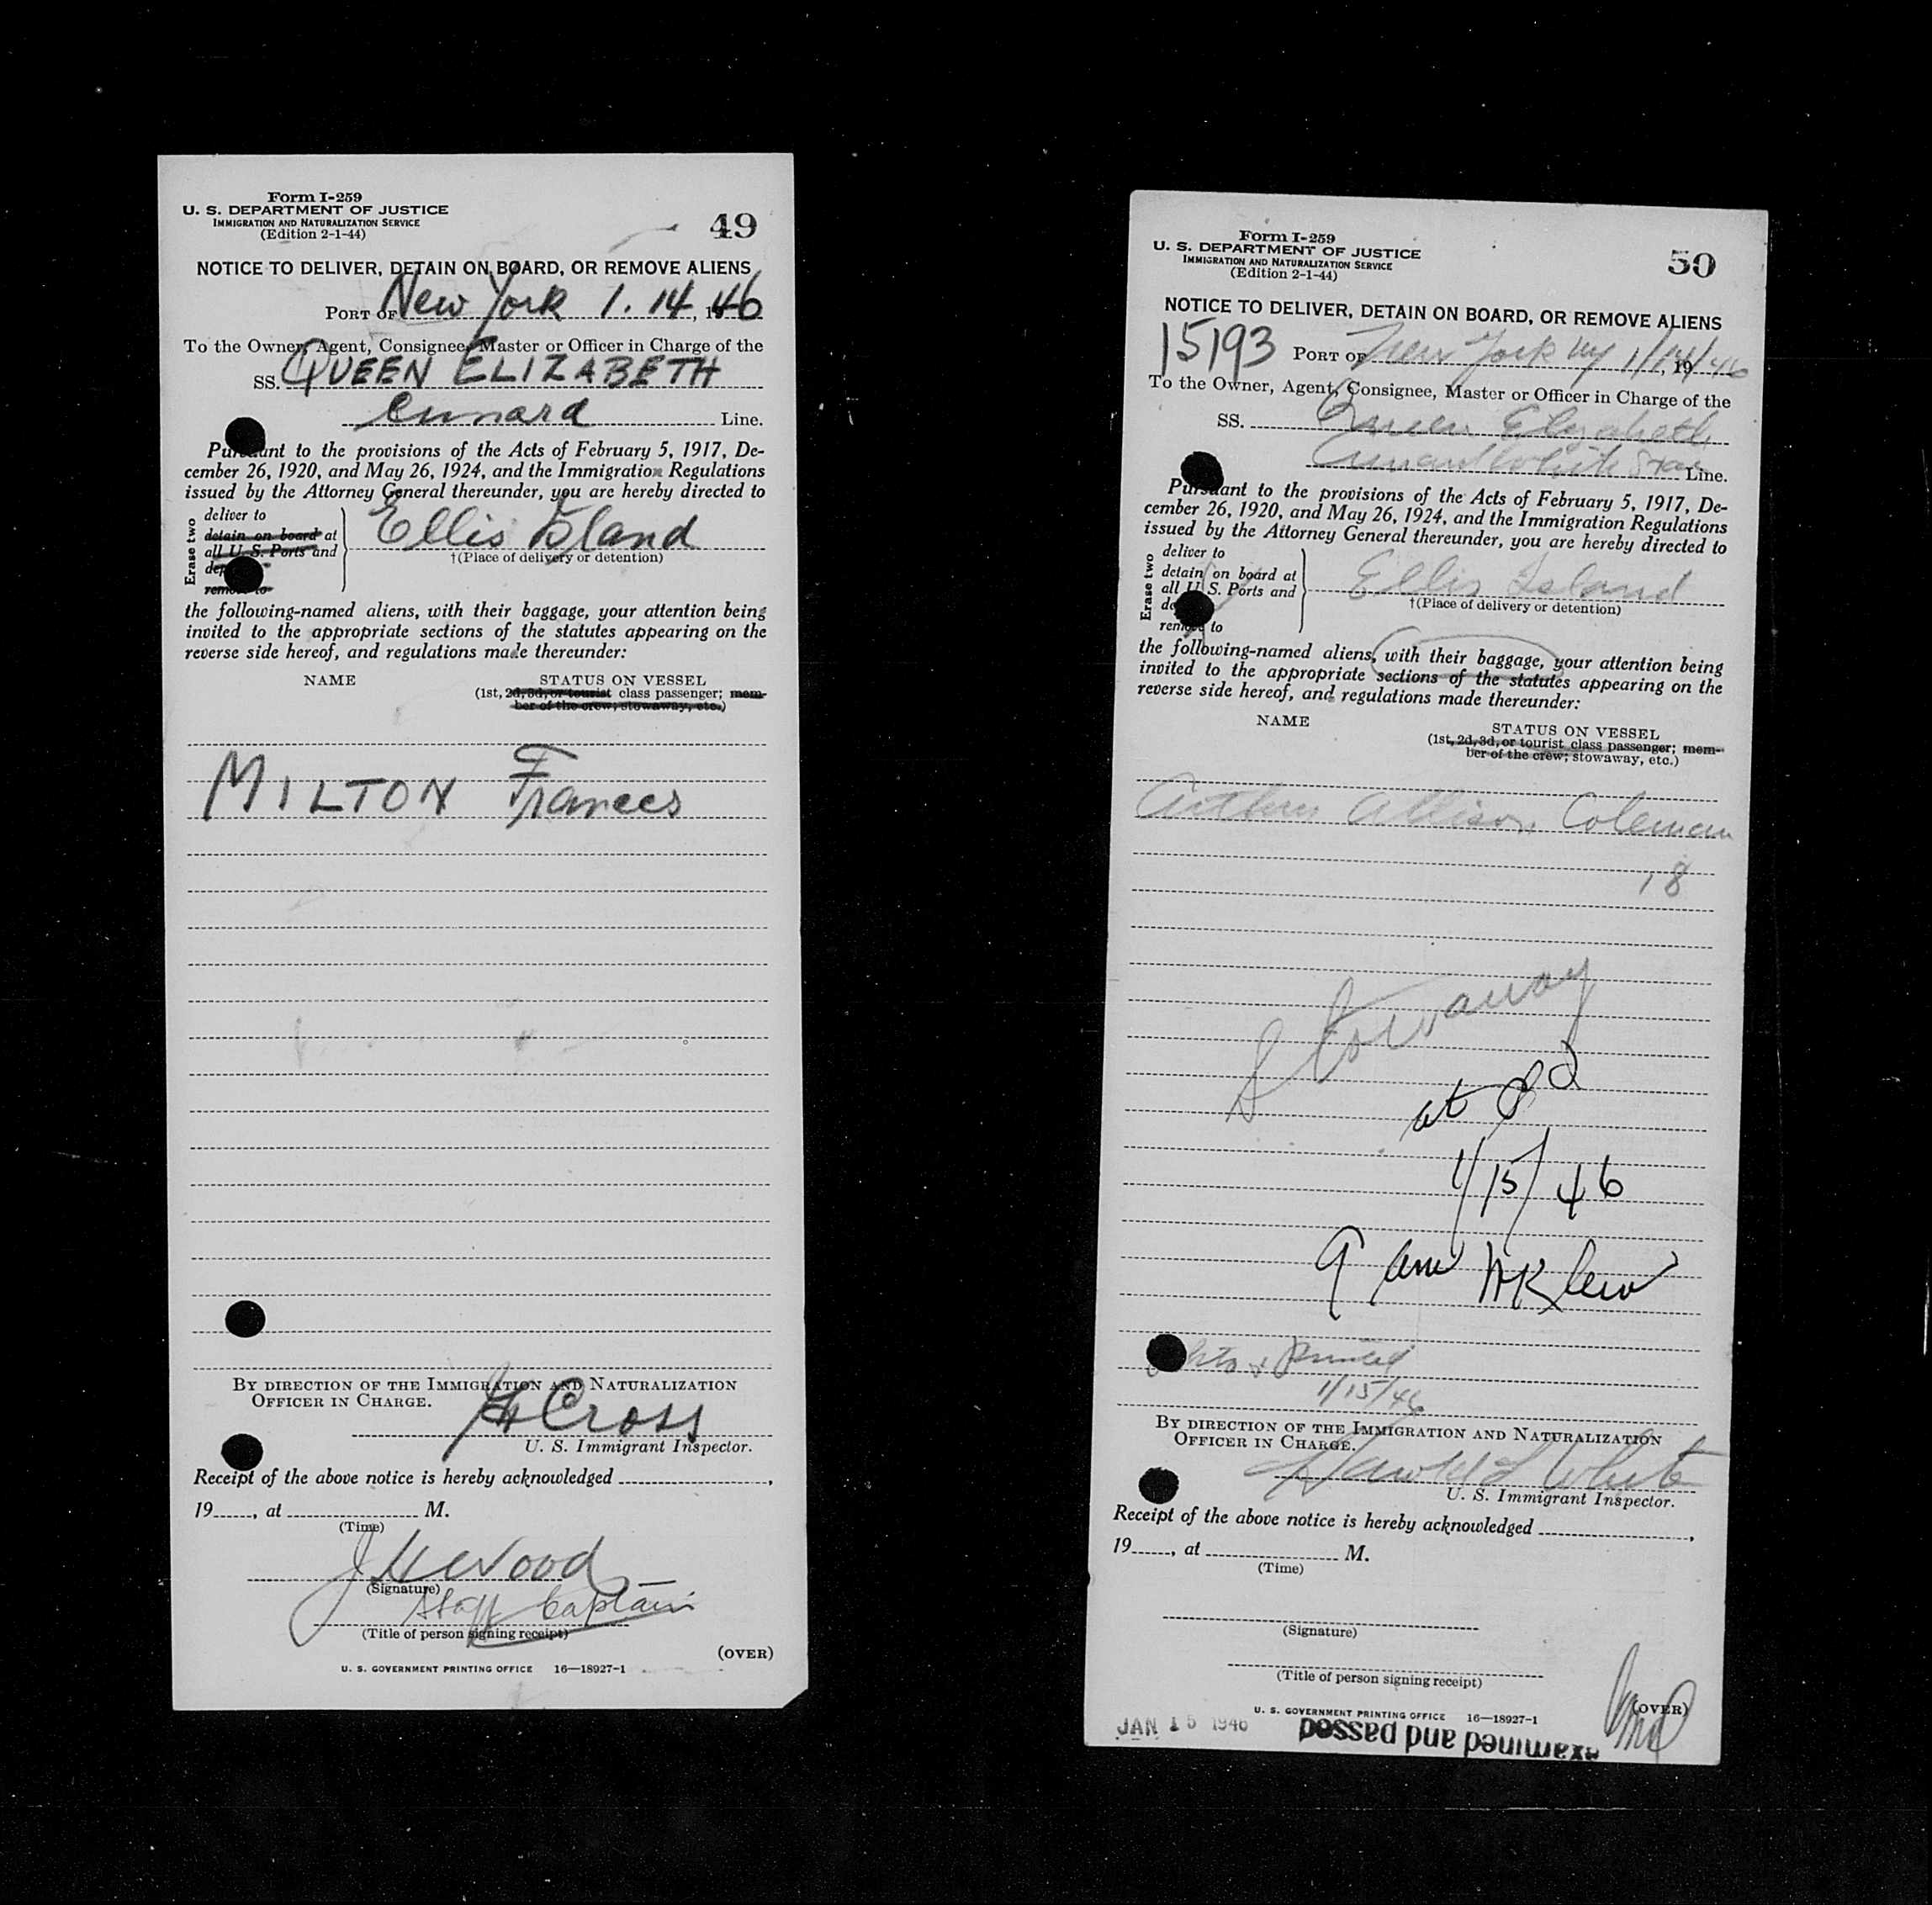 Form I-259
U. S. DEPARTMENT OF JUSTICE
IMMIGRATION AND NATURALIZATION SERVICE
(Edition 2-1-44)
49
NOTICE TO DELIVER, DETAIN ON BOARD, OR REMOVE ALIENS
PORT OF New York 1.14, 1946
To the Owner, Agent, Consignee, Master or Officer in Charge of the
SS. QUEEN ELIZABETH
Cunard Line.
Pursuant to the provisions of the Acts of February 5, 1917, De-
cember 26, 1920, and May 26, 1924, and the Immigration Regulations
issued by the Attorney General thereunder, you are hereby directed to
Erase two
deliver to
detain on board at
all U. S. Ports and
remove to
Ellis Island
†(Place of delivery or detention)
the following-named aliens, with their baggage, your attention being
invited to the appropriate sections of the statutes appearing on the
reverse side hereof, and regulations made thereunder:
NAME STATUS ON VESSEL
(1st, 2d, 3d, or tourist class passenger; mem-
ber of the crew; stowaway, etc.)
MILTON Frances
BY DIRECTION OF THE IMMIGRATION AND NATURALIZATION
OFFICER IN CHARGE.
Cross
U. S. Immigrant Inspector.
Receipt of the above notice is hereby acknowledged
19, at M.
(Time)
Wood
(Signature)
Staff Captain
(Title of person signing receipt)
(OVER)
U. S. GOVERNMENT PRINTING OFFICE 16—18927-1
Form I-259
U. S. DEPARTMENT OF JUSTICE
IMMIGRATION AND NATURALIZATION SERVICE
(Edition 2-1-44)
50
NOTICE TO DELIVER, DETAIN ON BOARD, OR REMOVE ALIENS
15193 PORT OF New York NY 1/14/46, 19
To the Owner, Agent, Consignee, Master or Officer in Charge of the
SS. Queen Elizabeth
Cunard White Star Line.
Pursuant to the provisions of the Acts of February 5, 1917, De-
cember 26, 1920, and May 26, 1924, and the Immigration Regulations
issued by the Attorney General thereunder, you are hereby directed to
Erase two
deliver to
detain on board at
all U. S. Ports and
remove to
Ellis Island
†(Place of delivery or detention)
the following-named aliens, with their baggage, your attention being
invited to the appropriate sections of the statutes appearing on the
reverse side hereof, and regulations made thereunder:
NAME STATUS ON VESSEL
(1st, 2d, 3d, or tourist class passenger; mem-
ber of the crew; stowaway, etc.)
Arthur Allison Coleman
18
Stowaway
at
1/15/46
9 am
1/15/46
BY DIRECTION OF THE IMMIGRATION AND NATURALIZATION
OFFICER IN CHARGE.
Harold L White
U. S. Immigrant Inspector.
Receipt of the above notice is hereby acknowledged
19, at M.
(Time)
(Signature)
(Title of person signing receipt)
(OVER)
U. S. GOVERNMENT PRINTING OFFICE 16—18927-1
JAN 15 1946
examined and passed